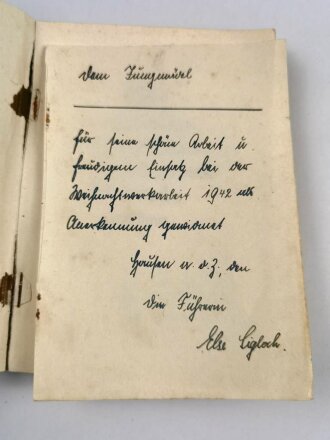 Dem Jungmädel
für seine schöne Arbeit u.
freudigem Einsatz bei der
Weihnachtswerkarbeit 1942 als
Anerkennung gewidmet
Hausen a. d. Z., den
Die Führerin
Else Sigloch.